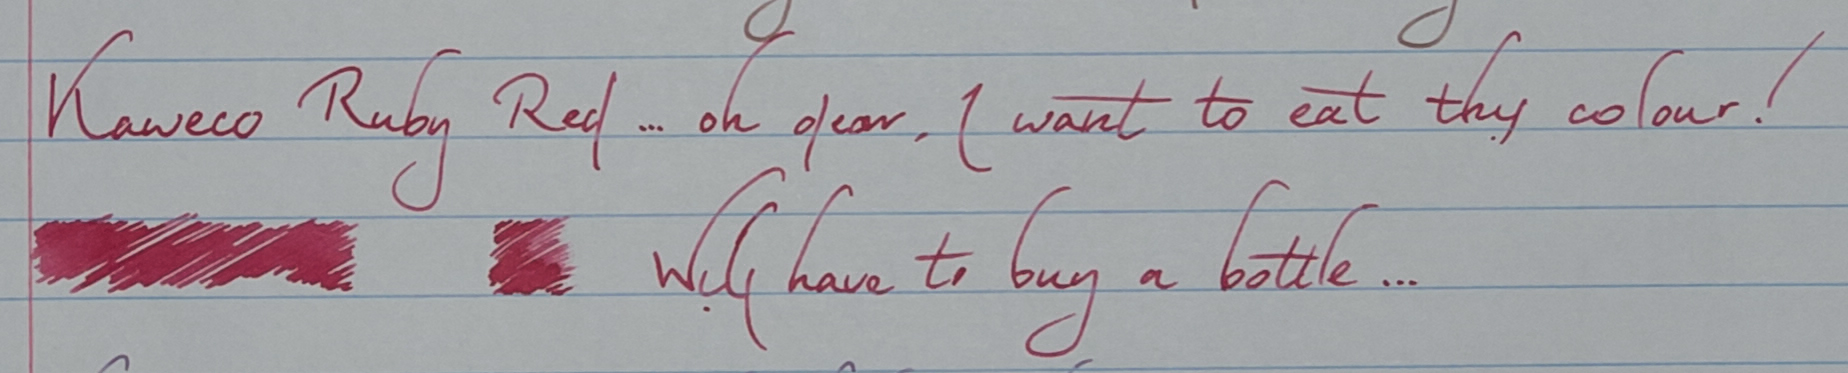 Kaweco Ruby Red... oh dear, I want to eat this colour!
Will have to buy a bottle...